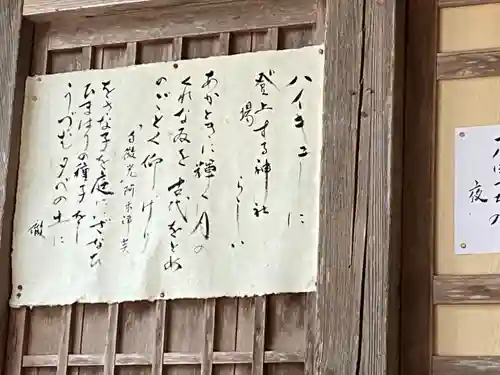 ハイキューに
登上する神社
場
らしい
あかときに輝く月の
くれなゐを 古代をとめ
のごとく仰げり
白微光 阿木津 英
をさな子を庭にいざなひ
ひまはりの種子を
うづむ夕べの土に
徹
夜